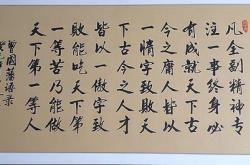 凡全副精神專
注一事終身必
有成就天下古
今之庸人皆以
一惰字致敗天
下古今之才人
皆以一傲字致
敗能吃天下第
一等苦乃能做
天下第一等人
曾國藩語录